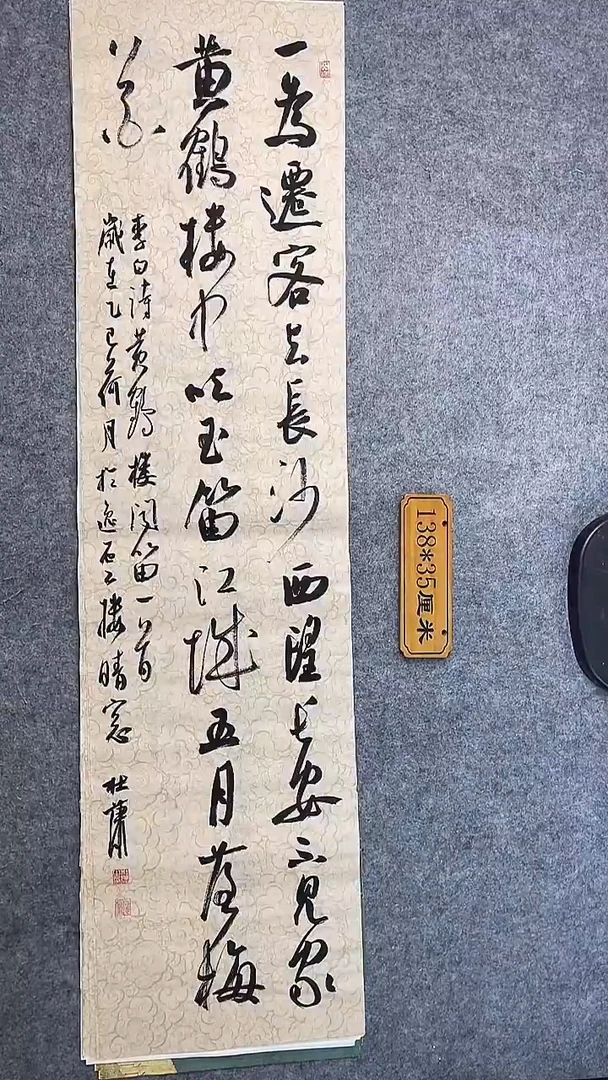 一為遷客去長沙西望长安不見家
黄鶴楼中吹玉笛江城五月落梅
花
李白詩黄鶴楼聞笛一首
歲在乙巳荷月於逸石楼晴窓 杜
138*35厘米